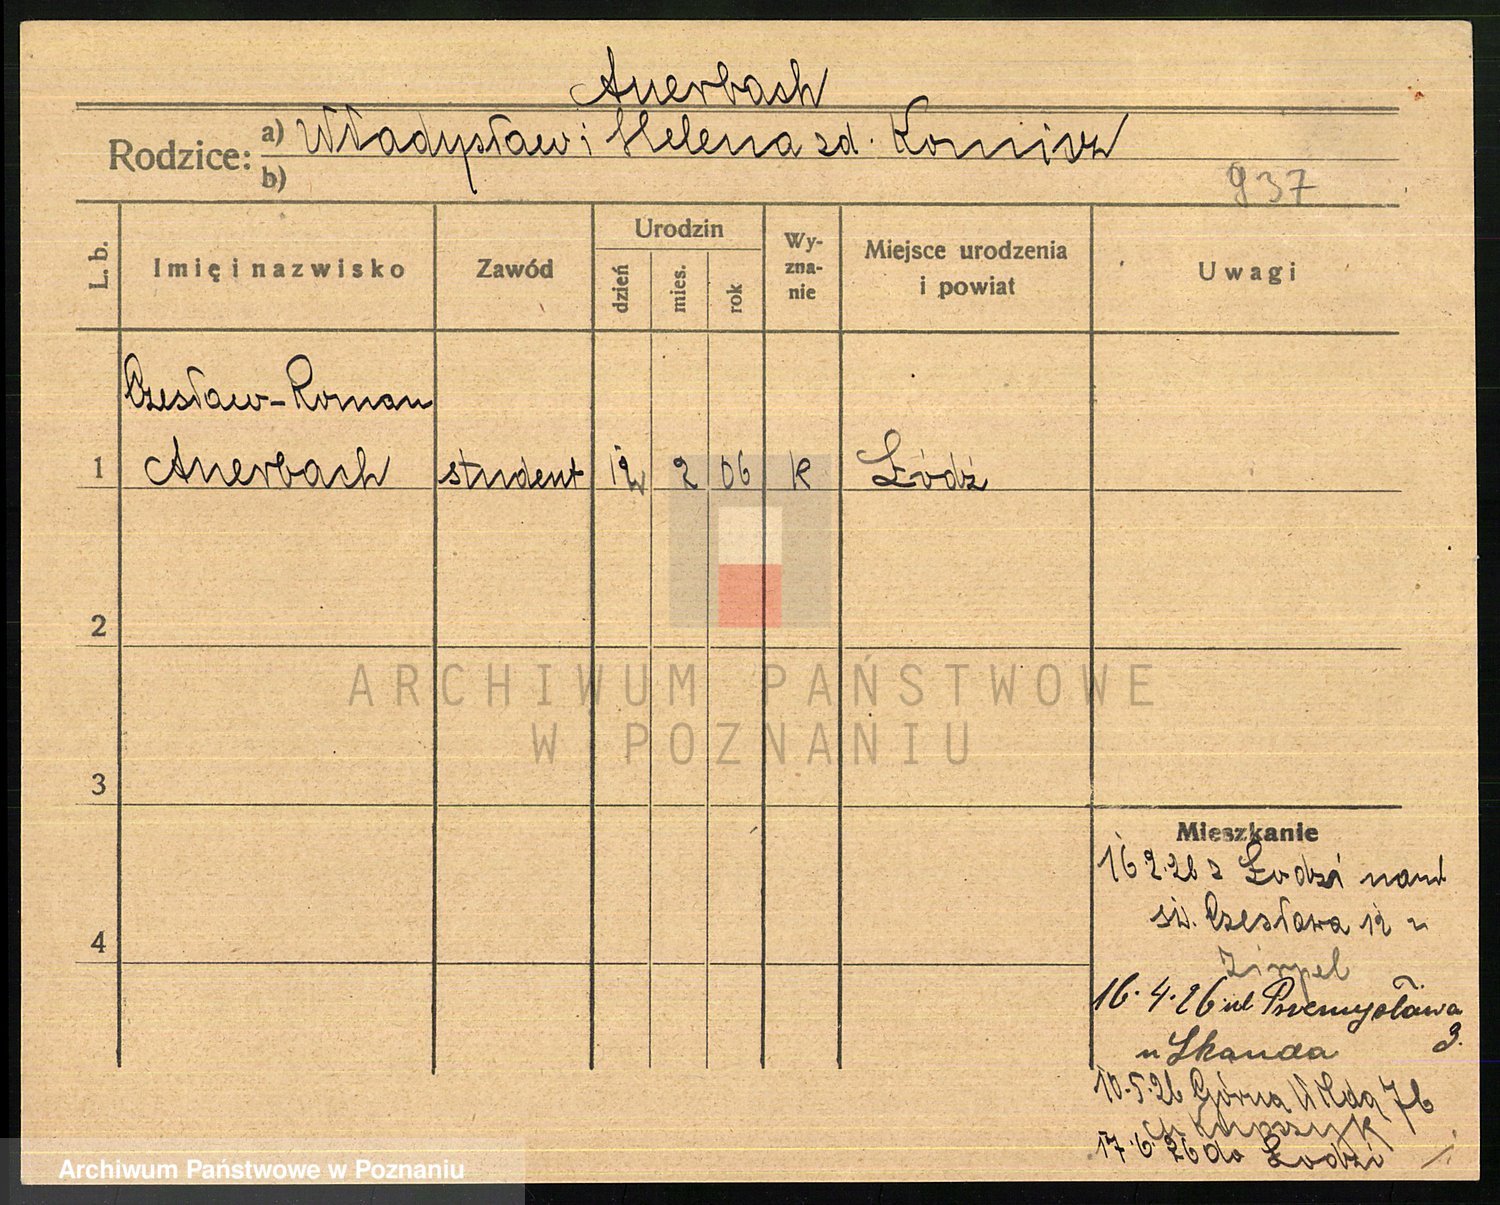 Auerbach
Rodzice: a) Władysław i Helena zd.
b)
937
L. b. Imię i nazwisko Zawód Urodzin dzień mies. rok Wyzna-nie Miejsce urodzenia i powiat Uwagi
Czesław-Roman
1 Auerbach student 12 2 06 R Łódź
2
ARCHIWUM PAŃSTWOWE
W POZNANIU
3
Mieszkanie
16 2.26 z Łodzi
św. Czesława 12 u
4
16.4.26 ul Przemysława
3.
u Skanda
10.5.26 Górna Wilda 76
17.6.26 do Łodzi
Archiwum Państwowe w Poznaniu